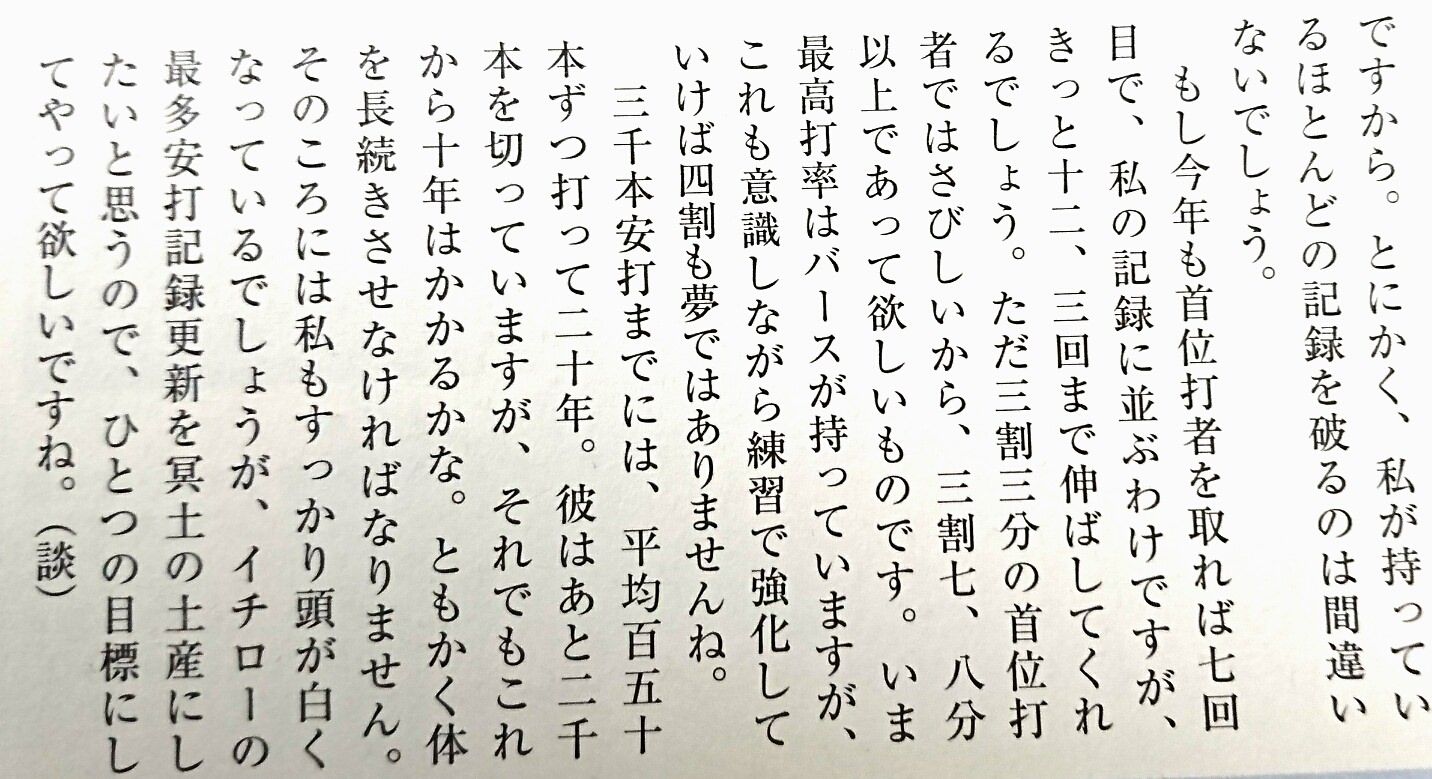 ですから。とにかく、私が持ってい
るほとんどの記録を破るのは間違い
ないでしょう。
もし今年も首位打者を取れば七回
目で、私の記録に並ぶわけですが、
きっと十二、三回まで伸ばしてくれ
るでしょう。ただ三割三分の首位打
者ではさびしいから、三割七、八分
以上であって欲しいものです。いま
最高打率はバースが持っていますが、
これも意識しながら練習で強化して
いけば四割も夢ではありませんね。
三千本安打までには、平均百五十
本ずつ打って二十年。彼はあと二千
本を切っていますが、それでもこれ
から十年はかかるかな。ともかく体
を長続きさせなければなりません。
そのころには私もすっかり頭が白く
なっているでしょうが、イチローの
最多安打記録更新を冥土の土産にし
たいと思うので、ひとつの目標にし
てやって欲しいですね。（談）